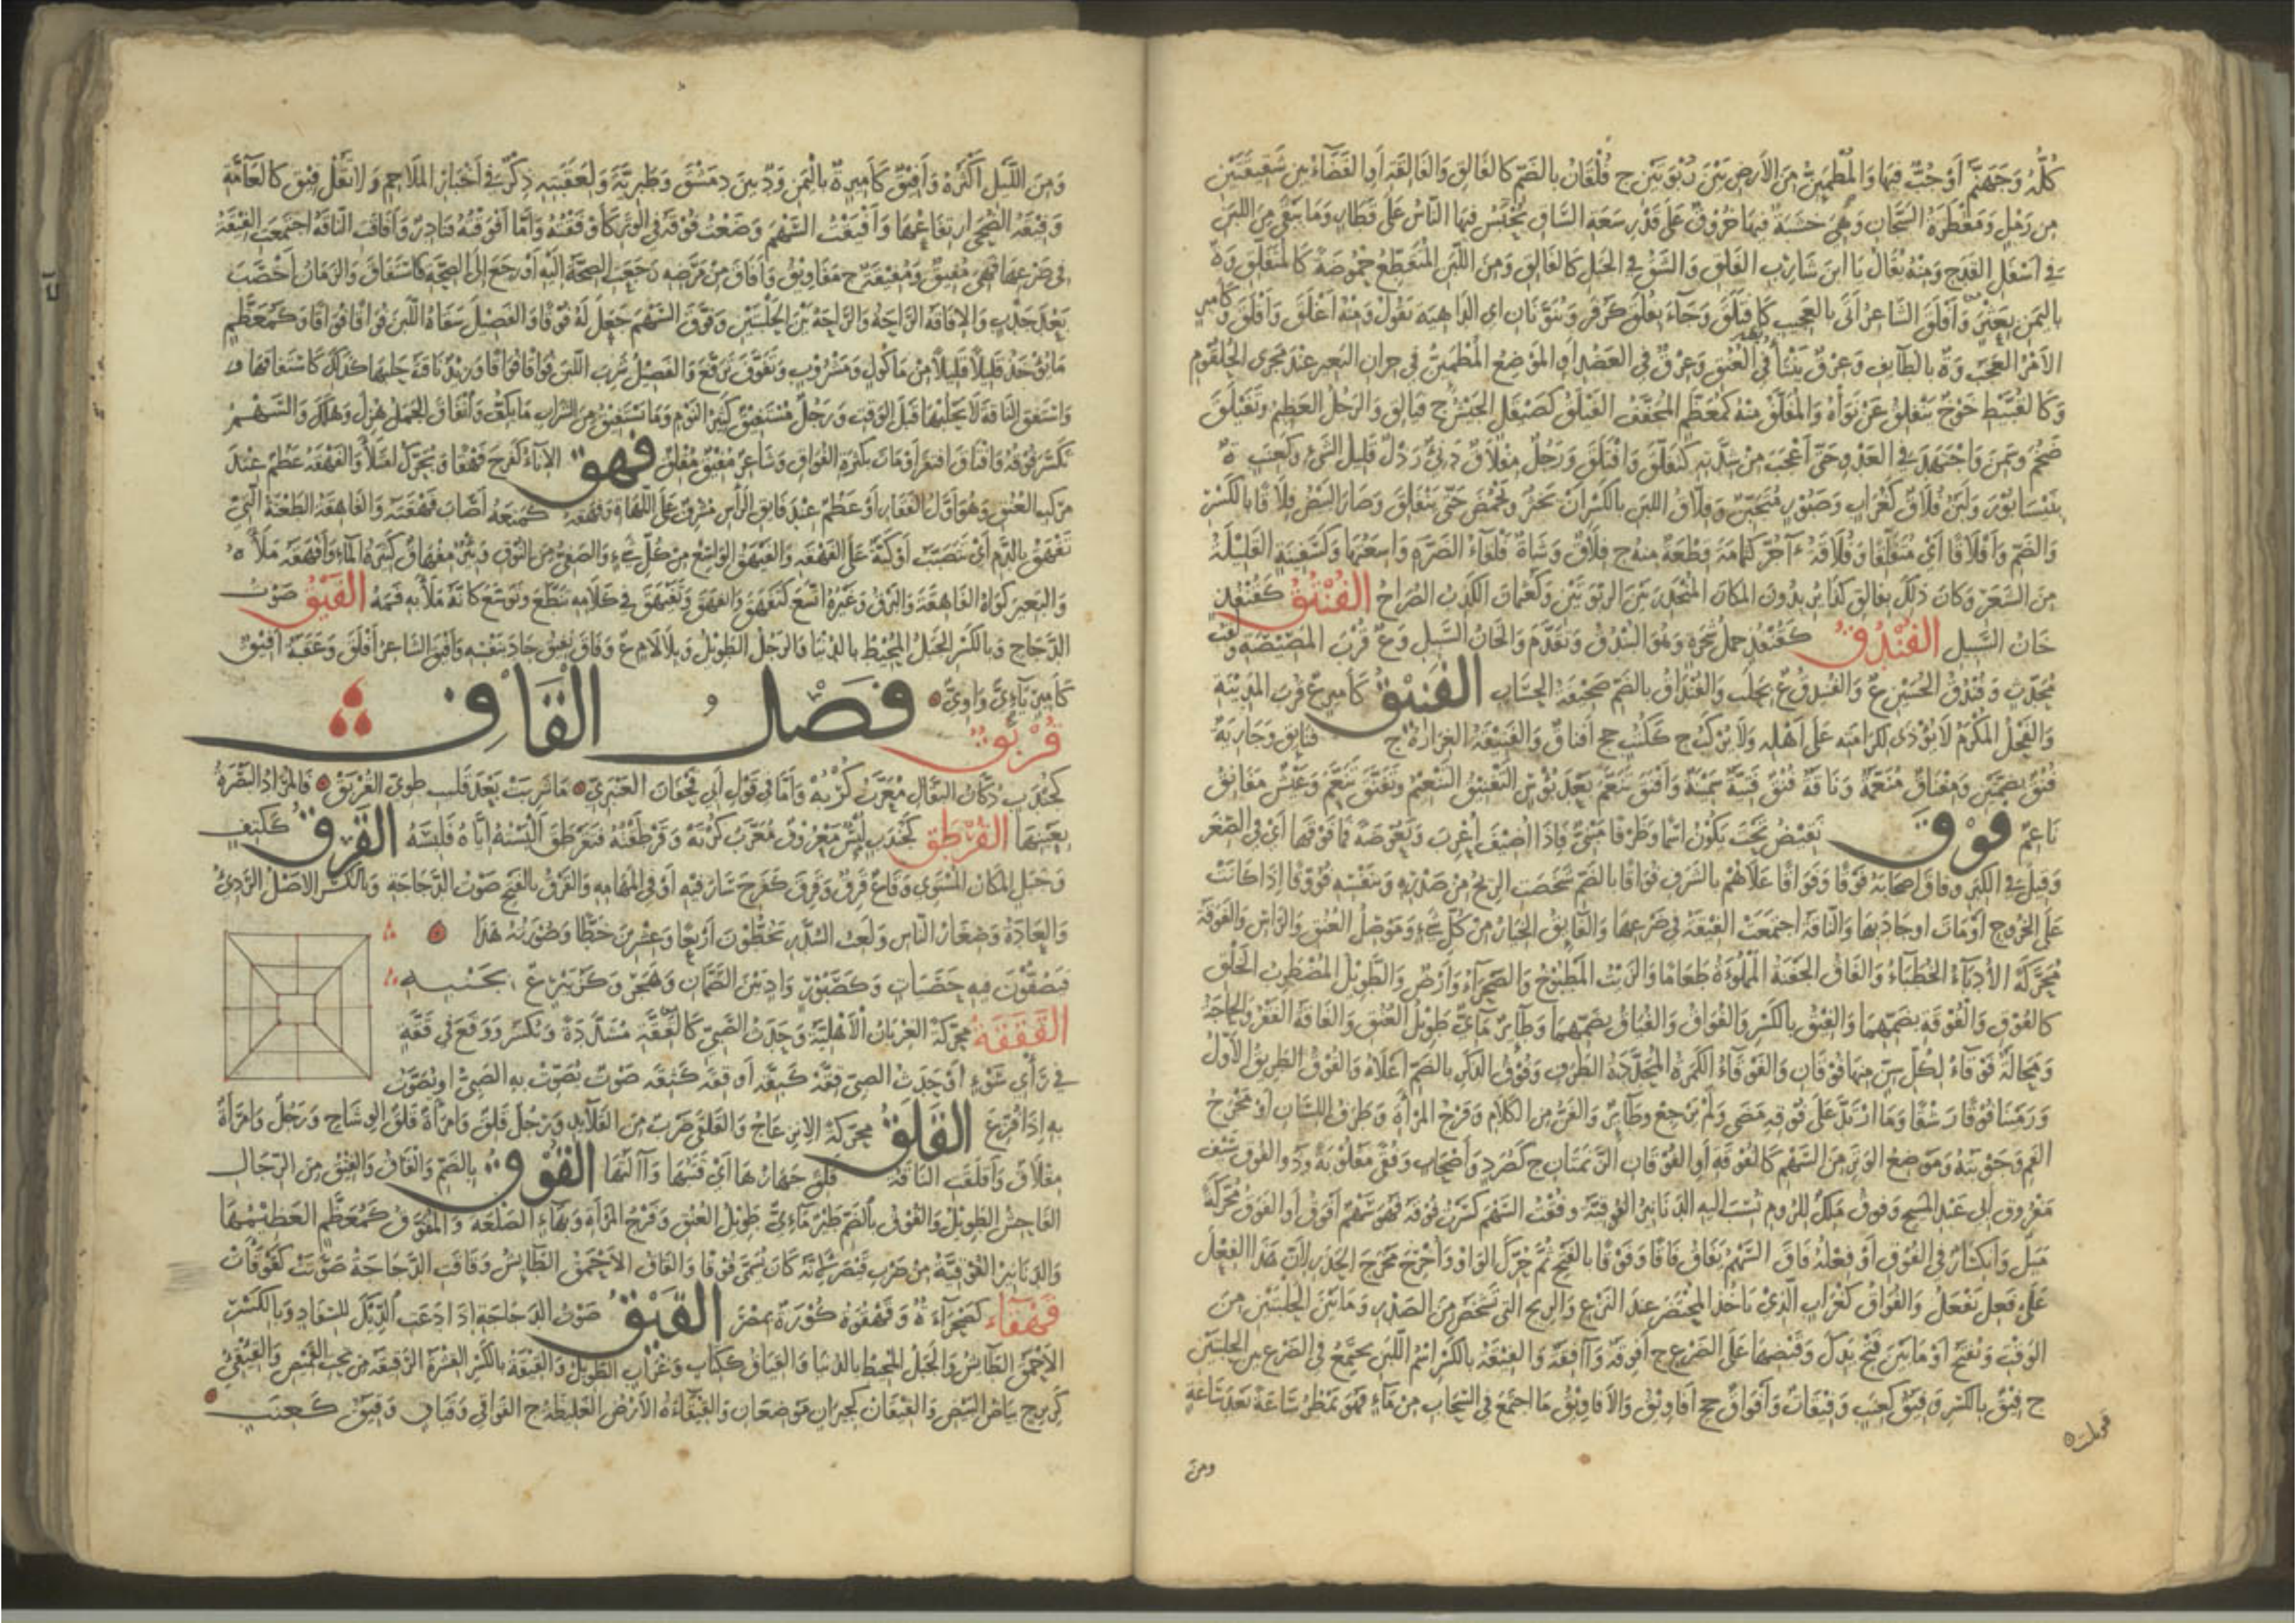 كُلُّهُ وَجَهَنَّمُ أَوْ جُبٌّ فِيهَا وَالمُطْمَئِنُّ مِنَ الأَرْضِ بَيْنَ رَبْوَتَيْنِ ج فُلْقَانٌ بِالضَّمِّ كَالفَالِقِ وَالفَالِقَةِ أَوِ الفَضَاءُ بَيْنَ شَقِيقَتَيْنِ
مِنْ رَمْلٍ وَمَقْطَرَةُ السَّجَّانِ وَهِيَ خَشَبَةٌ فِيهَا خُرُوقٌ عَلَى قَدْرِ سَعَةِ السَّاقِ يُحْبَسُ فِيهَا النَّاسُ عَلَى قِطَارٍ وَمَا يَبْقَى مِنَ اللَّبَنِ
فِي أَسْفَلِ القَدَحِ وَمِنْهُ يُقَالُ يَا ابْنَ شَارِبِ الفَلَقِ وَالشَّقُّ فِي الجَبَلِ كَالفَالِقِ وَمِنَ اللَّبَنِ المُتَقَطِّعُ حُمُوضَةً كَالمُتَفَلِّقِ وَة
بِاليَمَنِ بِعَثَّرَ وَأَفْلَقَ الشَّاعِرُ أَتَى بِالعَجِيبِ كَافْتَلَقَ وَجَاءَ بِعُلَقَ فُلَقَ كَزُفَرَ وَيُنَوَّنَانِ أَيِ الدَّاهِيَةِ تَقُولُ مِنْهُ أَعْلَقَ وَأَفْلَقَ وَكَأَمِيرٍ
الأَمْرُ العَجَبُ وَة بِالطَّائِفِ وَعِرْقٌ يَنْتَأُ فِي العُنُقِ وَعِرْقٌ فِي العَضُدِ أَوِ المَوْضِعُ المُطْمَئِنُّ فِي جِرَانِ البَعِيرِ عِنْدَ مَجْرَى الحُلْقُومِ
وَكَالقُبَّيْطِ خَوْخٌ يَتَفَلَّقُ عَنْ نَوَاهُ وَالمُفَلَّقُ مِنْهُ كَمُعَظَّمٍ المُجَفَّفُ الفَيْلَقُ كَصَيْقَلٍ الجَيْشُ ج فَيَالِقُ وَالرَّجُلُ العَظِيمُ وَتَفَيْلَقَ
ضَخُمَ وَسَمِنَ وَاجْتَهَدَ فِي العَدْوِ حَتَّى أَعْجَبَ مِنْ شِدَّتِهِ كَتَفَلَّقَ وَافْتَلَقَ وَرَجُلٌ مِفْلَاقٌ دَنِيٌّ رَذْلٌ قَلِيلُ الشَّيْءِ وَكَعِنَبٍ ة
بِنَيْسَابُورَ وَلَبَنٌ فُلَاقٌ كَغُرَابٍ وَصَبُورٍ مُتَجَبِّنٌ وَفِلَاقُ اللَّبَنِ بِالكَسْرِ أَنْ يَخْثُرَ وَيَحْمُضَ حَتَّى يَتَفَلَّقَ وَصَارَ البَيْضُ فِلَاقًا بِالكَسْرِ
وَالضَّمِّ وَأَفْلَاقًا أَيْ مُتَفَلِّقًا وَفُلَاقَةُ آجُرٍّ كَثُمَامَةٍ قِطْعَةٌ مِنْهُ ج فُلَاقٌ وَشَاةٌ فَلْقَاءُ الضَّرَّةِ وَاسِعَتُهَا وَكَسَفِينَةٍ القَلِيلَةُ
مِنَ الشَّعَرِ وَكَانَ ذَلِكَ بِفَالِقِ كَذَا يُرِيدُونَ المَكَانَ المُنْحَدِرَ بَيْنَ الرَّبْوَتَيْنِ وَكَعُثْمَانَ الكَذِبُ الصُّرَاحُ الفُنْتُقُ كَقُنْفُذٍ
خَانُ السَّبِيلِ الفُنْدُقُ كَقُنْفُذٍ حَمْلُ شَجَرَةٍ وَهُوَ البُنْدُقُ وَتَقَدَّمَ وَالخَانُ السَّبِيلُ وَع قُرْبَ المَصِّيصَةِ وَلَقَبُ
مُحَدِّثٍ وَفُنْدُقُ الحُسَيْنِ ع وَالفُنَيْدِقُ ع بِحَلَبَ وَالفُنْدَاقُ بِالضَّمِّ صَحِيفَةُ الحِسَابِ الفَنِيقُ كَأَمِيرٍ ع قُرْبَ المَدِينَةِ
وَالفَحْلُ المُكْرَمُ لَا يُؤْذَى لِكَرَامَتِهِ عَلَى أَهْلِهِ وَلَا يُرْكَبُ ج كَكُتُبٍ جج أَفْنَاقٌ وَالفَنِيقَةُ الغِرَارَةُ ج فَنَائِقُ وَجَارِيَةٌ
فُنُقٌ بِضَمَّتَيْنِ وَمِفْنَاقٌ مُنَعَّمَةٌ وَنَاقَةٌ فُنُقٌ فَتِيَّةٌ سَمِينَةٌ وَأَفْنَقَ تَنَعَّمَ بَعْدَ بُؤْسٍ التَّفْنِيقُ التَّنْعِيمُ وَتَفَنَّقَ تَنَعَّمَ وَعَيْشٌ مُفَانِقٌ
نَاعِمٌ فَوْقَ نَقِيضُ تَحْتَ يَكُونُ اسْمًا وَظَرْفًا مَبْنِيٌّ فَإِذَا أُضِيفَ أُعْرِبَ وَبَعُوضَةً فَمَا فَوْقَهَا أَيْ فِي الصِّغَرِ
وَقِيلَ فِي الكِبَرِ وَفَاقَ أَصْحَابَهُ فَوْقًا وَفَوَاقًا عَلَاهُمْ بِالشَّرَفِ فُوَاقًا بِالضَّمِّ شَخَصَتِ الرِّيحُ مِنْ صَدْرِهِ وَبِنَفْسِهِ فُؤُوقًا إِذَا كَانَتْ
عَلَى الخُرُوجِ أَوْ مَاتَ أَوْ جَادَ بِهَا وَالنَّاقَةُ اجْتَمَعَتِ الفِيقَةُ فِي ضَرْعِهَا وَالفَائِقُ الخِيَارُ مِنْ كُلِّ شَيْءٍ وَمَوْصِلُ العُنُقِ وَالرَّأْسِ وَالفَوَقَةُ
مُحَرَّكَةً الأُدَبَاءُ الخُطَبَاءُ وَالفَاقُ الجَفْنَةُ المَمْلُوءَةُ طَعَامًا وَالزَّيْتُ المَطْبُوخُ وَالصَّحْرَاءُ وَأَرْضٌ وَالطَّوِيلُ المُضْطَرِبُ الخَلْقِ
كَالفُوقِ وَالفُوقَةِ بِضَمِّهِمَا وَالفِيقِ بِالكَسْرِ وَالفُوَاقِ وَالفُيَاقِ بِضَمِّهِمَا وَطَائِرٌ مَائِيٌّ طَوِيلُ العُنُقِ وَالفَاقَةُ الفَقْرُ وَالحَاجَةُ
وَمَحَالَةٌ فَوْقَاءُ لِكُلِّ سِنٍّ مِنْهَا فُوقَانِ وَالفَوْقَاءُ الكَمَرَةُ المُحَدَّدَةُ الطَّرَفِ وَفُوقُ الذَّكَرِ بِالضَّمِّ أَعْلَاهُ وَالفُوقُ الطَّرِيقُ الأَوَّلُ
وَرَمَيْنَا فُوقًا رَشْقًا وَمَا ارْتَدَّ عَلَى فُوقِهِ مَضَى وَلَمْ يَرْجِعْ وَطَائِرٌ وَالفَنُّ مِنَ الكَلَامِ وَفَرْجُ المَرْأَةِ وَطَرَفُ اللِّسَانِ أَوْ مَخْرَجُ
الفَمِ وَجَوْبَتُهُ وَمَوْضِعُ الوَتَرِ مِنَ السَّهْمِ كَالفُوقَةِ أَوِ الفُوقَانِ الزَّنَمَتَانِ ج كَصُرَدٍ وَأَصْحَابٍ وَفُقًى مَقْلُوبَةً وَذُو الفُوقِ سَيْفُ
مَفْرُوقٍ أَبِي عَبْدِ المَسِيحِ وَفُوقُ مَلِكٌ لِلرُّومِ نُسِبَ إِلَيْهِ الدَّنَانِيرُ الفُوقِيَّةُ وَفُقْتُ السَّهْمَ كَسَرْتُ فُوقَهُ فَهُوَ سَهْمٌ أَفْوَقُ أَوِ الفَوَقُ مُحَرَّكَةً
مَيَلٌ وَانْكِسَارٌ فِي الفُوقِ أَوْ فِعْلُهُ فَاقَ السَّهْمُ يَفَاقُ فَاقًا وَفَوْقًا بِالفَتْحِ ثُمَّ حُرِّكَ الوَاوُ وَأُخْرِجَ مُخْرَجَ الحَذَرِ لِأَنَّ هَذَا الفِعْلَ
عَلَى فَعِلَ يَفْعَلُ وَالفُوَاقُ كَغُرَابٍ الَّذِي يَأْخُذُ المُحْتَضَرَ عِنْدَ النَّزْعِ وَالرِّيحُ الَّتِي تَشْخَصُ مِنَ الصَّدْرِ وَمَا بَيْنَ الحَلْبَتَيْنِ مِنَ
الوَقْتِ وَتُفْتَحُ أَوْ مَا بَيْنَ فَتْحِ يَدِكَ وَقَبْضِهَا عَلَى الضَّرْعِ ج أَفْوِقَةٌ وَآفِقَةٌ وَالفِيقَةُ بِالكَسْرِ اسْمُ اللَّبَنِ يَجْتَمِعُ فِي الضَّرْعِ بَيْنَ الحَلْبَتَيْنِ
ج فِيقٌ بِالكَسْرِ وَفِيَقٌ كَعِنَبٍ وَفِيقَاتٌ وَأَفْوَاقٌ جج أَفَاوِيقُ وَالأَفَاوِيقُ مَا اجْتَمَعَ فِي السَّحَابِ مِنْ مَاءٍ فَهُوَ يُمْطِرُ سَاعَةً بَعْدَ سَاعَةٍ
ومن
وَمِنَ اللَّيْلِ أَكْثَرُهُ وَأَفِيقٌ كَأَمِيرٍ ة بِاليَمَنِ وَد بَيْنَ دِمَشْقَ وَطَبَرِيَّةَ وَلِعَقَبَتِهِ ذِكْرٌ فِي أَخْبَارِ المَلَاحِمِ وَلَا تَقُلْ فِيقٌ كَالعَامَّةِ
وَفِيقَةُ الضُّحَى ارْتِفَاعُهَا وَأَفَقْتُ السَّهْمَ وَضَعْتُ فُوقَهُ فِي الوَتَرِ كَأَوْفَقْتُهُ وَأَمَّا أَفْوَقْتُهُ فَنَادِرٌ وَأَفَاقَتِ النَّاقَةُ اجْتَمَعَتِ الفِيقَةُ
فِي ضَرْعِهَا فَهِيَ مُفِيقٌ وَمُفِيقَةٌ ج مَفَاوِيقُ وَأَفَاقَ مِنْ مَرَضِهِ رَجَعَتِ الصِّحَّةُ إِلَيْهِ أَوْ رَجَعَ إِلَى الصِّحَّةِ كَاسْتَفَاقَ وَالزَّمَانُ أَخْصَبَ
بَعْدَ جَدْبٍ وَالإِفَاقَةُ الرَّاحَةُ وَالرَّاحَةُ بَيْنَ الحَلْبَتَيْنِ وَفَوَّقَ السَّهْمَ جَعَلَ لَهُ فُوقًا وَالفَصِيلَ سَقَاهُ اللَّبَنَ فُوَاقًا فُوَاقًا وَكَمُعَظَّمٍ
مَا يُؤْخَذُ قَلِيلًا قَلِيلًا مِنْ مَأْكُولٍ وَمَشْرُوبٍ وَتَفَوَّقَ تَرَفَّعَ وَالفَصِيلُ شَرِبَ اللَّبَنَ فُوَاقًا فُوَاقًا وَزَيْدٌ نَاقَتَهُ حَلَبَهَا كَذَلِكَ كَاسْتَفَاقَهَا
وَاسْتَفِقِ النَّاقَةَ لَا تَحْلُبْهَا قَبْلَ الوَقْتِ وَرَجُلٌ مُسْتَفِيقٌ كَثِيرُ النَّوْمِ وَمَا يَسْتَفِيقُ مِنَ الشَّرَابِ مَا يَكُفُّ وَانْفَاقَ الجَمَلُ هُزِلَ وَهَلَكَ وَالسَّهْمُ
تَكَسَّرَ فُوقُهُ وَافْتَاقَ افْتَقَرَ أَوْ مَاتَ بِكَثْرَةِ الفُوَاقِ وَشَاعِرٌ مُفِيقٌ مُفْلِقٌ فَهِقَ الإِنَاءُ كَفَرِحَ فَهْقًا وَيُحَرَّكُ امْتَلَأَ وَالفَهْقَةُ عَظْمٌ عِنْدَ
مُرَكَّبِ العُنُقِ وَهُوَ أَوَّلُ الفَقَارِ أَوْ عَظْمٌ عِنْدَ فَائِقِ الرَّأْسِ مُشْرِفٌ عَلَى اللَّهَاةِ وَفَهَقَهُ كَمَنَعَهُ أَصَابَ فَهْقَتَهُ وَالفَاهِقَةُ الطَّعْنَةُ الَّتِي
تَفْهَقُ بِالدَّمِ أَيْ تَتَصَبَّبُ أَوْ كَيَّةٌ عَلَى الفَهْقَةِ وَالفَيْهَقُ الوَاسِعُ مِنْ كُلِّ شَيْءٍ وَالصَّفِيُّ مِنَ النُّوقِ وَبِئْرٌ مِفْهَاقٌ كَثِيرَةُ المَاءِ وَأَفْهَقَهُ مَلَأَهُ
وَالبَعِيرَ كَوَاهُ الفَاهِقَةَ وَالبَرْقُ وَغَيْرُهُ اتَّسَعَ كَتَفَهَّقَ وَانْفَهَقَ وَتَفَيْهَقَ فِي كَلَامِهِ تَنَطَّعَ وَتَوَسَّعَ كَأَنَّهُ مَلَأَ بِهِ فَمَهُ الفَيْقُ صَوْتُ
الدَّجَاجِ وَبِالكَسْرِ الجَبَلُ المُحِيطُ بِالدُّنْيَا وَالرَّجُلُ الطَّوِيلُ وَبِلَا لَامٍ ع وَفَاقَ يَفِيقُ جَادَ بِنَفْسِهِ وَأَفْيَقَ الشَّاعِرُ أَفْلَقَ وَعَقَبَةُ أَفِيقٍ
كَأَمِيرٍ يَائِيٌّ وَاوِيٌّ فَصْلُ القَافِ قُرْبَقٌ
كَجُنْدَبٍ دُكَّانُ البَقَّالِ مُعَرَّبُ كُرْبُهْ وَأَمَّا فِي قَوْلِ أَبِي قُحْفَانَ العَنْبَرِيِّ مَا شَرِبَتْ بَعْدَ قَلِيبِ طَوِيِّ القُرْبَقِ فَالمُرَادُ البَصْرَةُ
بِعَيْنِهَا القُرْطَقُ كَجُنْدَبٍ لُبْسٌ مَعْرُوفٌ مُعَرَّبُ كُرْتَهْ وَقَرْطَقْتُهُ فَتَقَرْطَقَ أَلْبَسْتُهُ إِيَّاهُ فَلَبِسَهُ القَرِقُ كَكَتِفٍ
وَجَبَلٍ المَكَانُ المُسْتَوِي وَقَاعٌ قَرِقٌ وَقَرِقَ كَفَرِحَ سَارَ فِيهِ أَوْ فِي المَهَامِهِ وَالقَرْقُ بِالفَتْحِ صَوْتُ الدَّجَاجَةِ وَبِالكَسْرِ الأَصْلُ الرَّدِيءُ
وَالعَادَةُ وَصِغَارُ النَّاسِ وَلَعِبُ السُّدَّرِ يَخُطُّونَ أَرْبَعًا وَعِشْرِينَ خَطًّا وَصُورَتُهُ هَذَا
فَيَصُفُّونَ فِيهِ حَصَيَاتٍ وَكَصَبُورٍ وَادٍ بَيْنَ الصَّمَّانِ وَهَجَرَ وَكَزُبَيْرٍ ع بِجَنْبِهِ
القَقَقَةُ مُحَرَّكَةً الغِرْبَانُ الأَهْلِيَّةُ وَحَدَثُ الصَّبِيِّ كَالقَقَّةِ مُشَدَّدَةً وَتُكْسَرُ وَوَقَعَ فِي قَقَّةٍ
فِي رَأْيِ سَوْءٍ أَوْ حَدَثُ الصَّبِيِّ قِقَّةٌ كَبِقَّةٍ أَوْ قِقَةٌ كَثِقَةٍ صَوْتٌ يُصَوِّتُ بِهِ الصَّبِيُّ أَوْ يُصَوَّتُ
بِهِ إِذَا فُزِّعَ القَلَقُ مُحَرَّكَةً الِانْزِعَاجُ وَالقَلَقِيُّ ضَرْبٌ مِنَ القَلَائِدِ وَرَجُلٌ قَلِقٌ وَامْرَأَةٌ قَلِقُ الوِشَاحِ وَرَجُلٌ وَامْرَأَةٌ
مِقْلَاقٌ وَأَقْلَقَتِ النَّاقَةُ قَلِقَ جَهَازُهَا أَيْ قَتَبُهَا وَآلَتُهَا القُوقُ بِالضَّمِّ وَالقَاقُ وَالقِيقُ مِنَ الرِّجَالِ
الفَاحِشُ الطَّوِيلُ وَالقُوقُ بِالضَّمِّ طَيْرٌ مَائِيٌّ طَوِيلُ العُنُقِ وَفَرْجُ المَرْأَةِ وَبِهَاءٍ الصَّلْعَةُ وَالمُقَوَّقُ كَمُعَظَّمٍ العَظِيمُهَا
وَالدَّنَانِيرُ القُوقِيَّةُ مِنْ ضَرْبِ قَيْصَرَ لِأَنَّهُ كَانَ يُسَمَّى قُوقًا وَالقَاقُ الأَحْمَقُ الطَّائِشُ وَقَاقَتِ الدَّجَاجَةُ صَوَّتَتْ كَقَوْقَأَتْ
قَهْقَاء كَصَحْرَاءَ ة وَقَهْقُوَةُ كُورَةٌ بِمِصْرَ القَيْقُ صَوْتُ الدَّجَاجَةِ إِذَا دَعَتِ الدِّيكَ لِلسِّفَادِ وَبِالكَسْرِ
الأَحْمَقُ الطَّائِشُ وَالجَبَلُ المُحِيطُ بِالدُّنْيَا وَالقِيَاقُ كَكِتَابٍ وَغُرَابٍ الطَّوِيلُ وَالقِيقَةُ بِالكَسْرِ القِشْرَةُ الرَّقِيقَةُ مِنْ تَحْتِ القَيْضِ وَالقِيقِيُّ
كَزِبْرِجٍ بَيَاضُ البَيْضِ وَالقِيقَانُ كَجِيرَانٍ مَوْضِعَانِ وَالقِيقَاءَةُ الأَرْضُ الغَلِيظَةُ ج القَوَاقِي وَقَيَاقٍ وَقِيَقٌ كَعِنَبٍ